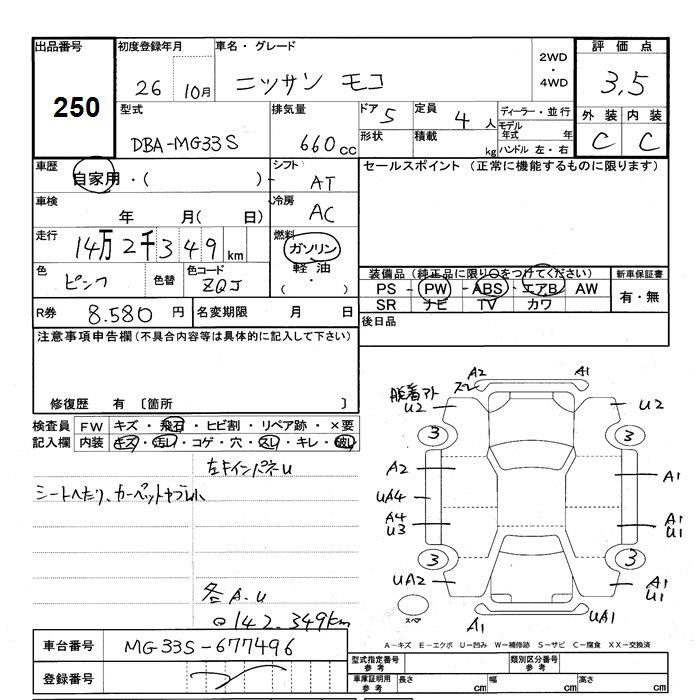 出品番号 初度登録年月 車名・グレード 2WD・4WD 評価点
250 26 10月 ニッサン モコ 3.5
型式 排気量 ドア 5 定員 4人 ディーラー・並行 外装 内装
DBA-MG33S 660cc 形状 積載 kg モデル年式 年 C C
ハンドル 左・右
車歴 自家用・( ) シフト AT セールスポイント (正常に機能するものに限ります)
車検 年 月( 日) 冷房 AC
走行 14万2千349km 燃料 ガソリン
軽油
・
( )
色 ピンク 色替 色コード ZQJ 装備品 (純正品に限り○をつけてください) 新車保証書
PS - PW - ABS - エアB AW 有・無
SR ナビ TV カワ
R券 8.580円 名変期限 月 日 後日品
注意事項申告欄 (不具合内容等は具体的に記入して下さい)
修復歴 有 〔箇所 〕
検査員 FW キズ・飛石・ヒビ割・リペア跡・×要
記入欄 内装 キズ・汚い・コゲ・穴・スレ・キレ・破レ
左下インパネU
シートへたり、カーペットヤブレ
各A.U
142.349km
A2 A1
脱着アト スレ
U2 U2
3 3
A2 A1
UA4
A4 A1
U3 U1
3 3
UA2 A1
U1
スペア A1 UA1
A-キズ E-エクボ U-凹み W-補修跡 S-サビ C-腐食 XX-交換済
車台番号 MG33S-677496
登録番号
型式指定番号 参考 類別区分番号 参考
車庫証明用 参考 長さ cm 幅 cm 高さ cm